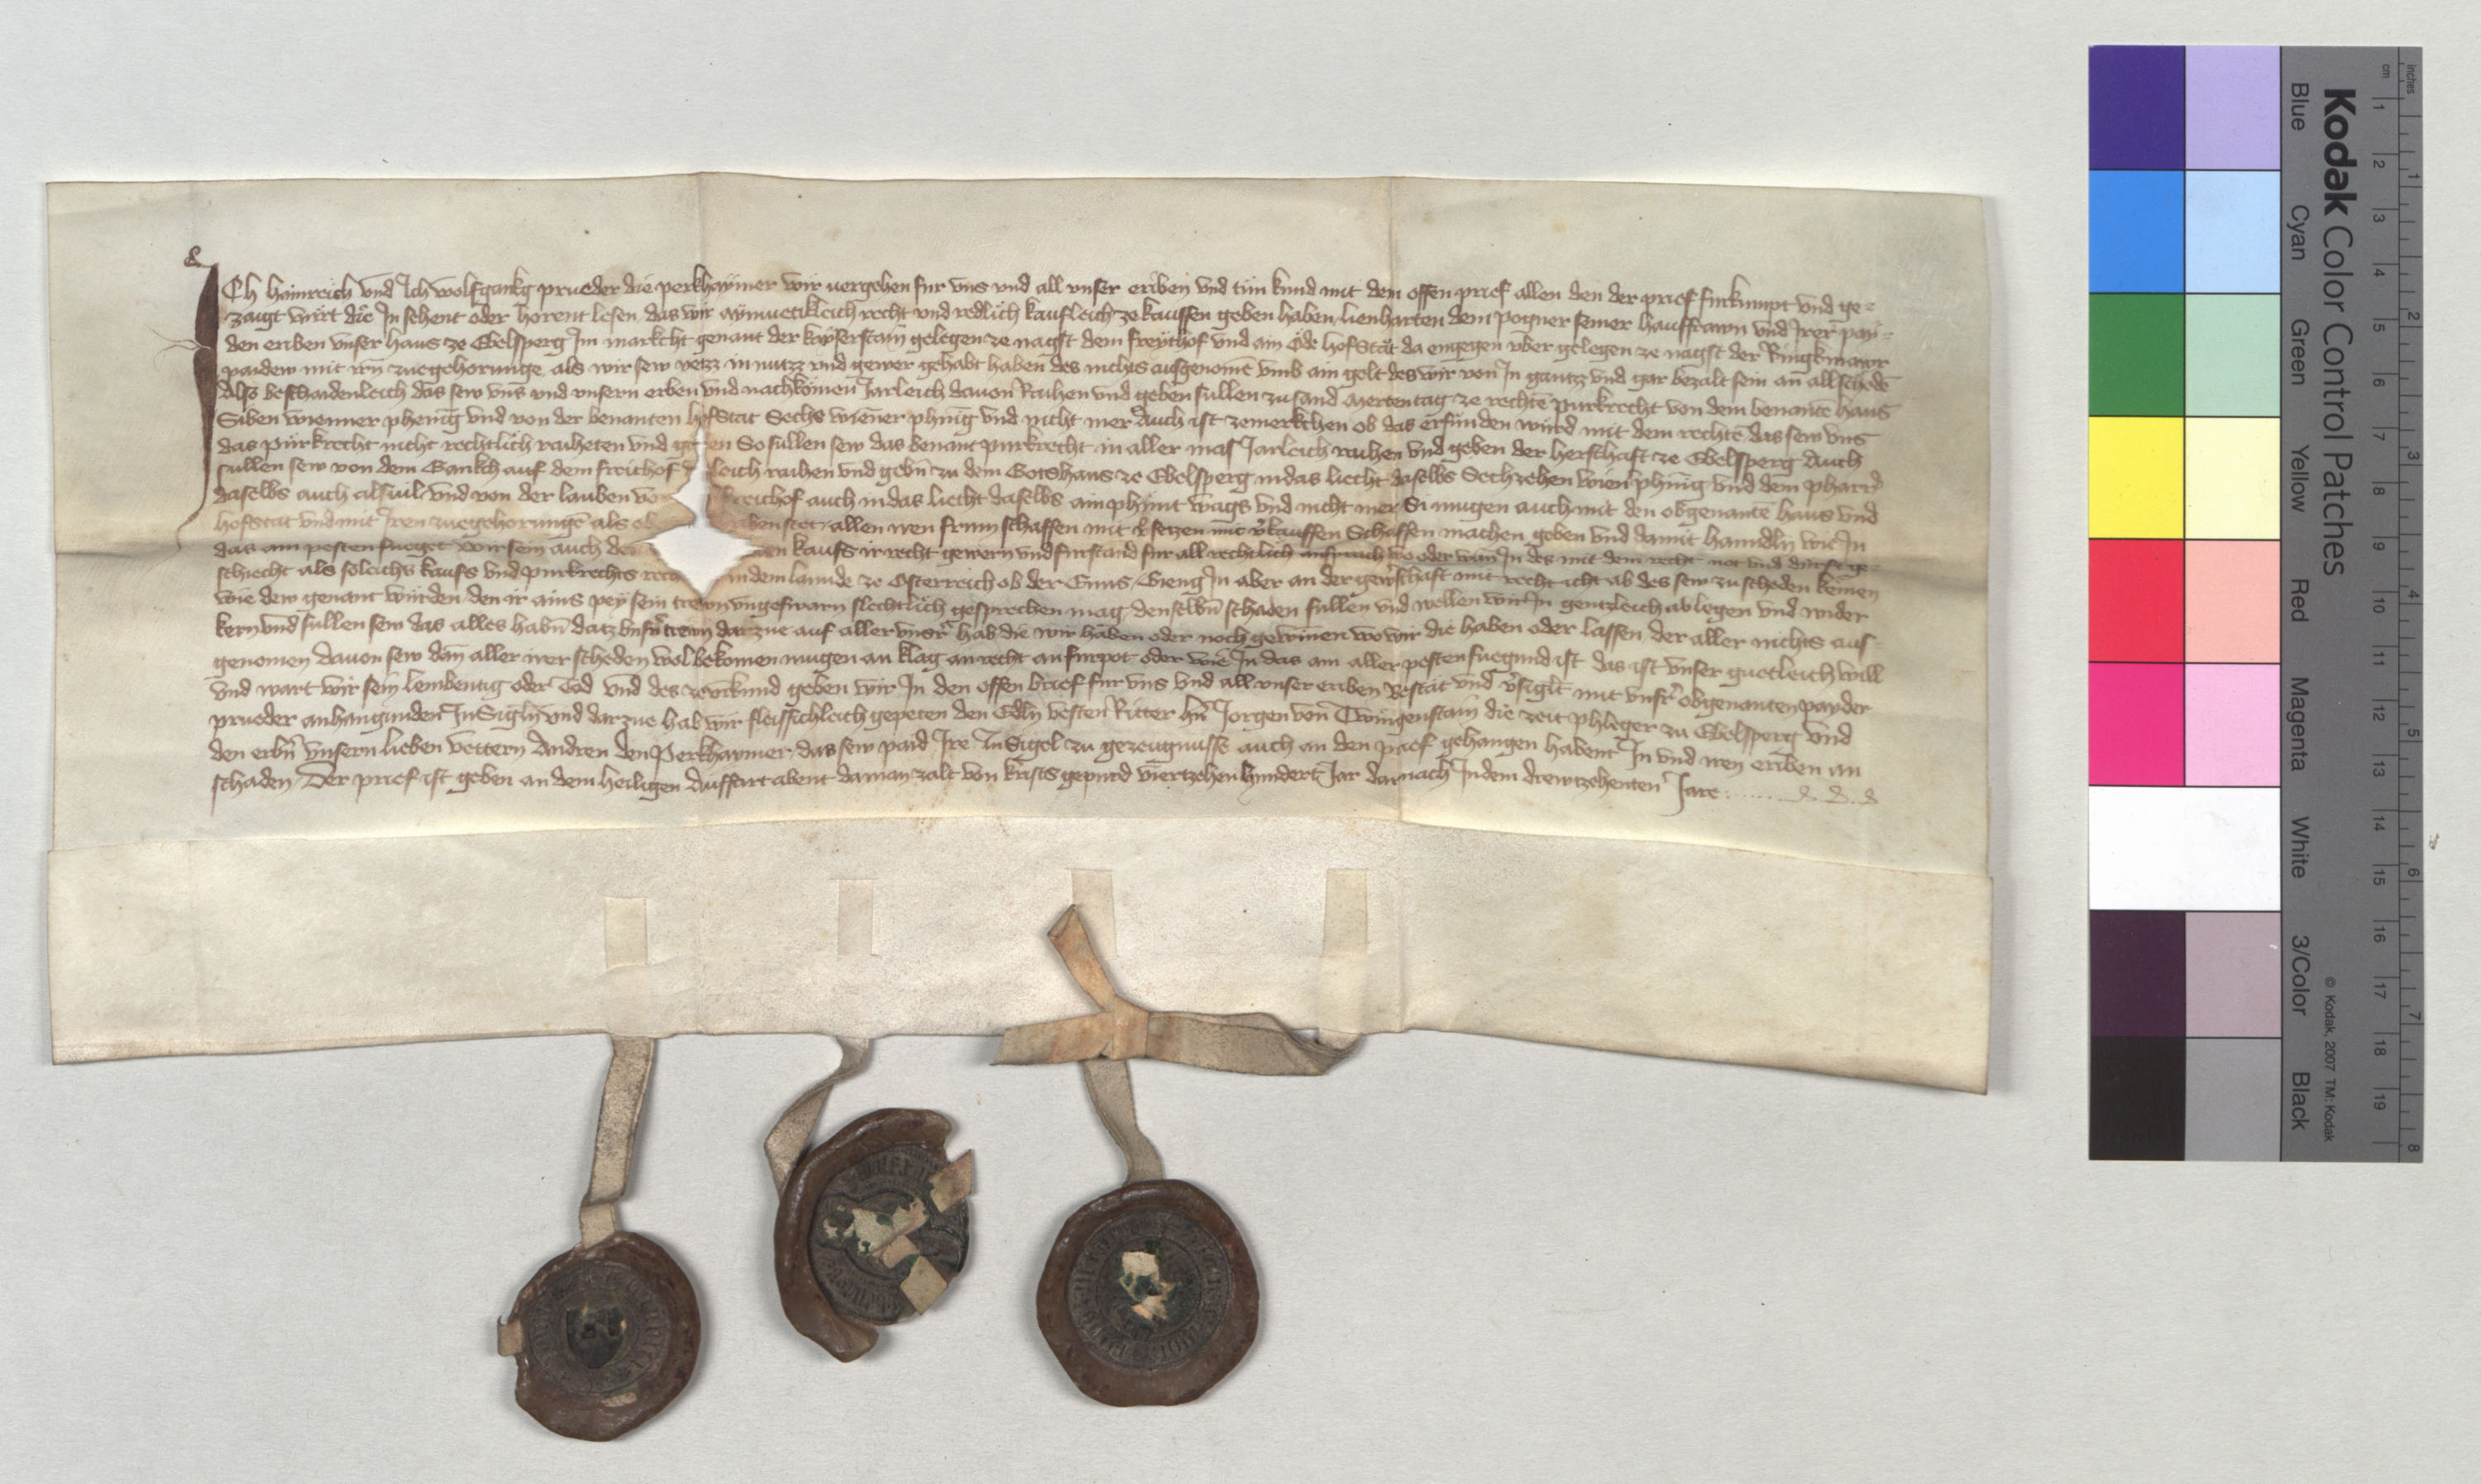 Ich Hainreich vnd Ich wolfgankg prueder die perkhaymer wir uergehen fur vns vnd all vnser eriben vnd tun kund mit dem offen prief allen den der prief furkumpt vnd ge-
zaigt wirt die In sehent oder horent lesen das wir aymuetikleich recht vnd redlich kaufleich ze kauffen geben haben lienharten dem pogner seiner hausfrawn vnd Irer pay-
den eriben vnser haus ze Ebelsperg Im markcht genant der kayserstain gelegen ze nagst dem freythof vnd ain öde hofstat da engegen vber gelegen ze nagst der Ringkmawr
paidew mit irn zuegehorunge als wir sew vetzz in nutzz vnd gewer gehabt haben des nichts ausgenome vmb ain gelt des wir von In gantz vnd gar bezalt sein an all schede
Also beschaidenleich das sew vns vnd vnsern erben vnd nachkomen Jarleich dauon Raihen vnd geben sullen zu sand Mertentag ze rechte purkrecht von dem benante haus
Siben wienner phenig vnd von der benanten hofstat Sechs wiener phinig vnd nicht mer Auch ist zemerkchen ob das erfunden wurd mit dem rechte das sew vns
das purkrecht nicht rechtlich raiheten vnd ge en So sullen sew das benant purkrecht in aller mas Jarleich raihen vnd geben der herschaft ze Ebelsperg Auch
sullen sew von dem Gankch auf dem freithof leich raihen vnd gebn zu dem Gotshaus ze Ebelsperg in das liecht daselbs Sechzehen wien phinig vnd dem pharr
daselbs auch alsuil vnd von der lauben vo reithof auch in das liecht daselbs ain phunt wags vnd nicht mer Si mugen auch mit den obgenante haus vnd
hofstat vnd mit Iren zuegehorunge als ob benstet allen iren frum schaffen mit v setzen mit vkauffen Schaffen machen geben vnd damit hanndln wie In
das am pesten fueget wir sein auch de en kaufs ir recht gewern vnd furstand fur all rechtlich ansprach wo oder wan In des mit dem recht not vnd durft ge-
schiecht als soleichs kaufs vnd purkrechts rech in dem lannde ze Osterreich ob der Enns Gieng In aber an der gewrschaft mit recht icht ab des sew zu scheden kemen
wie dew genant wurden den ir ains pey sein trewn vngesworn slechtlich gesprechen mag denselbn schaden sullen vnd wellen wir In gentzleich ablegen vnd wider
kern vnd sullen sew das alles habn datz vnsn trewn darzue auf aller vnsr hab die wir haben oder noch gewinen wo wir die haben oder lassen der aller nichts aus-
genomen dauon sew dan aller irer scheden wol bekomen mugen an klag an recht an furpot oder wie In das am aller pesten fuegund ist das ist vnser guetleich will
vnd wart wir sein lembentig oder Tod vnd des ze vrkund geben wir In den offen brief fur vns vnd all vnser eriben Bestat vnd vsiglt mit vnsr obgenanten payder
prueder anhangunden InSigln vnd darzue hab wir fleissichleich gepeten den Edln vesten Ritter hn Jorgen von Twingenstain die zeit phleger zu Ebelsperg vnd
den erbn vnsern lieben vettern Andren den Perkhaymer das sew paid Ire InSigel zu gezeugnusse auch an den prief gehangen habent In vnd iren eriben an
schaden Der prief ist geben an dem heiligen Auffart abent da man zalt von krists gepurd viertzehen hundert Jar darnach In dem drewtzehenten Jare
Kodak Color Control Patches
Blue Cyan Green Yellow Red Magenta White 3/Color Black
© Kodak, 2007 TM: Kodak
cm 1 2 3 4 5 6 7 8 9 10 11 12 13 14 15 16 17 18 19
inches 1 2 3 4 5 6 7 8